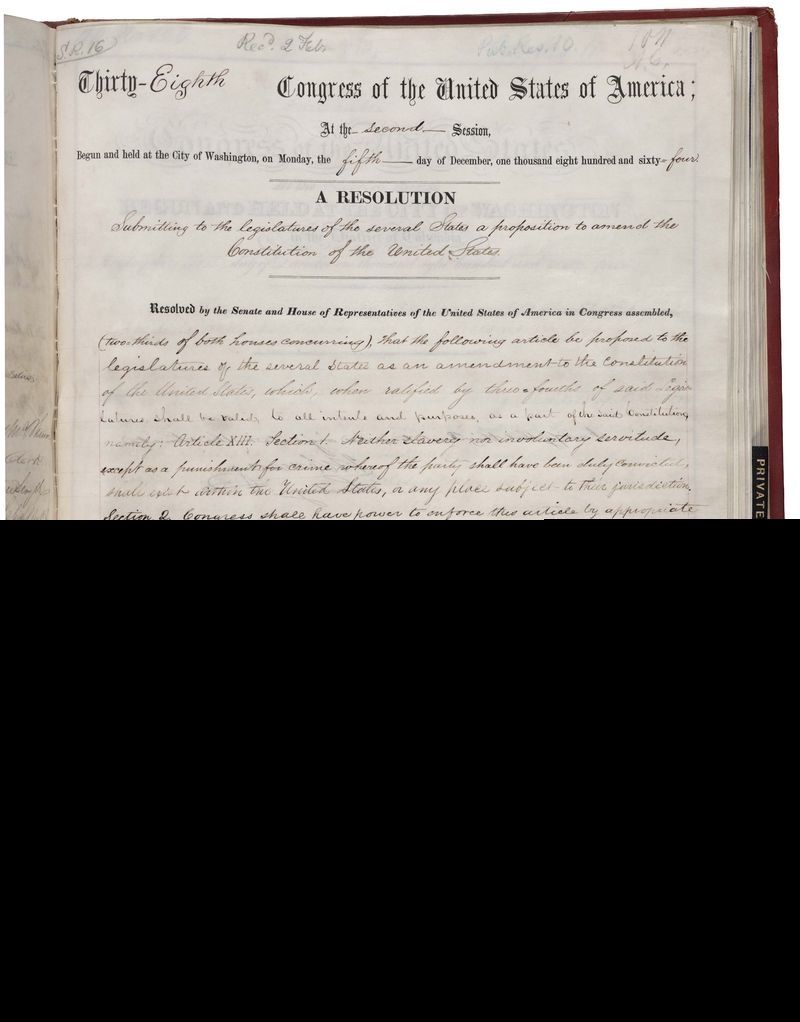 S.R. 16
Rec'd. 2 Feb.
Pub. Res. 10.
104
Thirty-Eighth Congress of the United States of America;
At the second Session,
Begun and held at the City of Washington, on Monday, the fifth day of December, one thousand eight hundred and sixty-four.
A RESOLUTION
Submitting to the legislatures of the several States a proposition to amend the
Constitution of the United States.
Resolved by the Senate and House of Representatives of the United States of America in Congress assembled,
(two-thirds of both houses concurring), that the following article be proposed to the
legislatures of the several States as an amendment to the Constitution
of the United States, which, when ratified by three-fourths of said Legis-
latures shall be valid, to all intents and purposes, as a part of the said Constitution,
namely: Article XIII. Section 1. Neither slavery nor involuntary servitude,
except as a punishment for crime whereof the party shall have been duly convicted,
shall exist within the United States, or any place subject to their jurisdiction.
Section 2. Congress shall have power to enforce this article by appropriate
PRIVATE